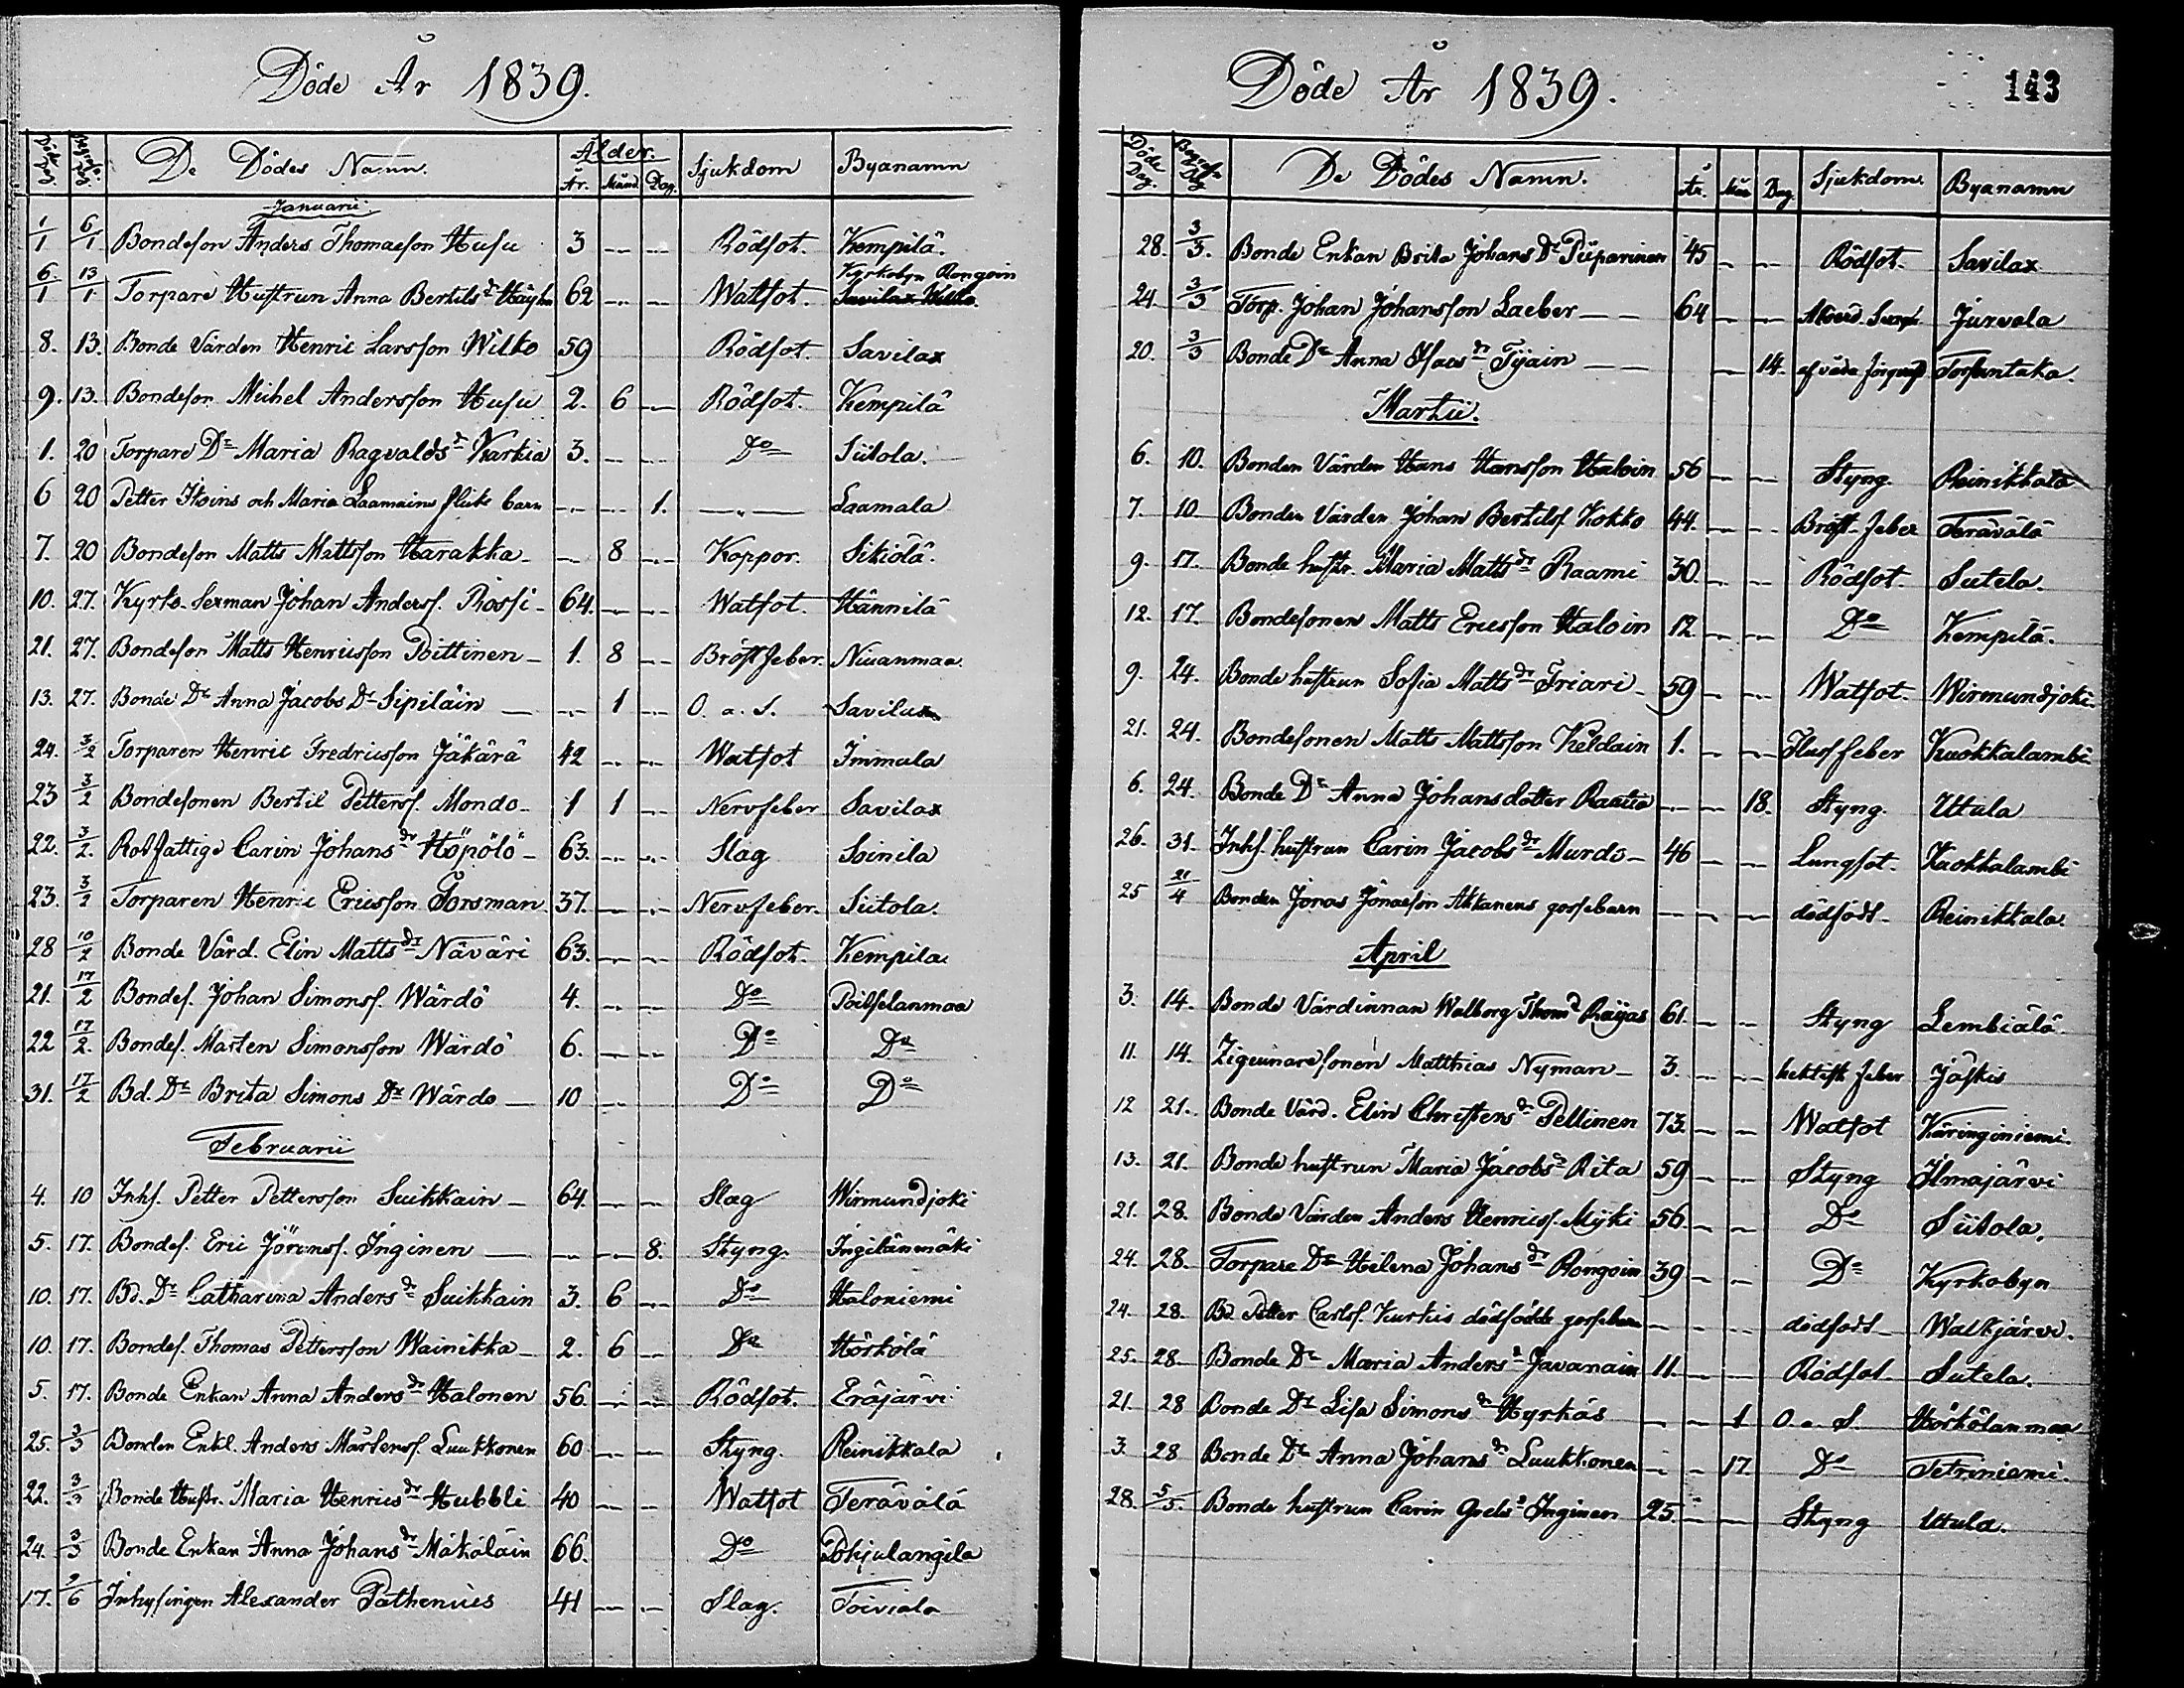 Döde År 1839.
Döde Dag. Begrafn. Dag De Dödes Namn. Ålder. År. Månd. Dag. Sjukdom Byanamn
Januarii
1/1 6/1 Bondeson Anders Thomasson Husu 3 — — Rödsot. Kempilä.
Kyrkobyn Rongoin
6./1 13/1 Torpare Hustrun Anna Bertils dr 62 — — Watsot.
8. 13. Bonde Värden Henric Larsson Wilko 59 Rödsot. Savilax
9. 13. Bondeson Michel Andersson Husu 2. 6 — Rödsot. Kempilä
1. 20 Torpare Dr Maria Ragvalds dr Karkia 3. — — Do Siitola.
6 20 Petter Ikoins och Maria Laamains flicke barn — — 1. —„— Laamala
7. 20 Bondeson Matts Mattsson Harakka — 8 — Koppor. Sikiölä.
10. 27. Kyrko Sexman Johan Anderss. Rossi 64. — — Watsot. Hännilä
21. 27. Bondeson Matts Henricsson Poittinen 1. 8 — Bröstfeber. Niuanmaa.
13. 27. Bonde Dr Anna Jacobs Dr Sipiläin — — 1 — O. a. S. Savilax
24. 3/2 Torparen Henric Fredricsson Jäkärä 42 — — Watsot Immala
23 3/2 Bondesonen Bertil Petterss. Mondo 1 1 — Nervfeber Savilax
22. 3/2. Rotfattige Carin Johans dr Höpölö 63. — — Slag Soinila
23. 3/2 Torparen Henric Ericsson Forsman. 37. — — Nervfeber. Siitola.
28 10/2 Bonde Värd. Elin Matts dr Näväri 63. — — Rödsot. Kempila
21. 17/2 Bondes. Johan Simonss. Wärdö 4. — — Do Poitselanmaa
22 17/2. Bondes. Marten Simonsson Wärdö 6. — — Do Do
31. 17/2 Bd. Dr Brita Simons Dr Wärdö 10 — Do Do
Februarii
4. 10 Inhs. Petter Pettersson Suikkain 64. — — Slag Wirmundjoki
5. 17. Bondes. Eric Jöranss. Inginen — — 8. Styng. Ingilänmäki
10. 17. Bd. Dr Catharina Anders dr Suikkain 3. 6 — Do Haloniemi
10. 17. Bondes. Thomas Pettersson Wainikka 2. 6 — Do Hörkölä
5. 17. Bonde Enkan Anna Anders dr Halonen 56. — — Rödsot. Eräjärvi
25. 3/3 Bonden Enkl. Anders Mårtenss. Luukkonen 60 — — Styng. Reinikkala
22. 3/3 Bonde Hustr. Maria Henrics dr Hubbli 40 — — Watsot Terävälä
24. 3/3 Bonde Enkan Anna Johans dr Mäkäläin 66. Do Pohjulangila
17. 2/6 Inhysingen Alexander Pathenius 41 — — Slag. Toiviala
Döde År 1839.
143
Döde Dag. Begrafn. Dag De Dödes Namn. År. Mån Dag Sjukdom. Byanamn
28. 3/3. Bonde Enkan Brita Johans Dr Piiparinen 45 — — Rödsot. Savilax
24. 3/3 Torp. Johan Johansson Laeber 64 — — Jurvala
20. 3/3 Bonde Dr Anna Isacs dr Tyiain — 14. af våda
Martii.
6. 10. Bonden Värden Hans Hansson Haloin 56 — — Styng. Reinikkala
7. 10. Bonden Värden Johan Bertilss. Kokko 44. — — Bröst-feber Terävälä
9. 17. Bonde hustr. Maria Matts dr Raami 30. — — Rödsot. Sutela.
12. 17. Bondesonen Matts Ericsson Haloin 12. — — Do Kempilä.
9. 24. Bonde hustrun Sofia Matts dr Friari 59 — — Watsot. Wirmundjoki.
21. 24. Bondesonen Matts Mattsson Keldain 1. — — Slusfeber Kuokkalambi
6. 24. Bonde Dr Anna Johansdotter Rautio — — 18. Styng. Uttula
26. 31. Inhs. hustrun Carin Jacobs dr Murdo 46 — — Lungsot. Kuokkalambi
25 21/4 Bonden Jonas Jonasson Akkanens gossebarn — — — dödfödt Reinikkala.
April
3. 14. Bonde Värdinnan Walborg Thoms d. Räjas 61. — — Styng Lembiälä
11. 14. Zigeunaresonen Matthias Nyman 3. — — hektisk feber Jäskis
12 21. Bonde Värd. Elin Christens dr Pellinen 73. — — Watsot Käringiniemi.
13. 21. Bonde hustrun Maria Jacobs dr Rita 59 — — Styng Ilmajärvi
21. 28. Bonde Värden Anders Henricss. Myki 56. — — Do Siitola.
24. 28. Torpare Dr Helena Johans dr Rongoin 39 — — Do Kyrkobyn
24. 28. Bd Petter Carlss. Kurkis dödfödde gossebarn — — — dödfödt Walkjärvi.
25. 28 Bonde Dr Maria Anders dr Javanain 11. — — Rödsot Sutela.
21. 28 Bonde Dr Lisa Simons dr Hyrkäs — — 1 O. a. S. Hörkölänmaa
3. 28 Bonde Dr Anna Johans dr Luukkonen — — 17. Do Tetriniemi.
28. 5/5. Bonde hustrun Carin Grels dr Inginen 25. — — Styng Utula.